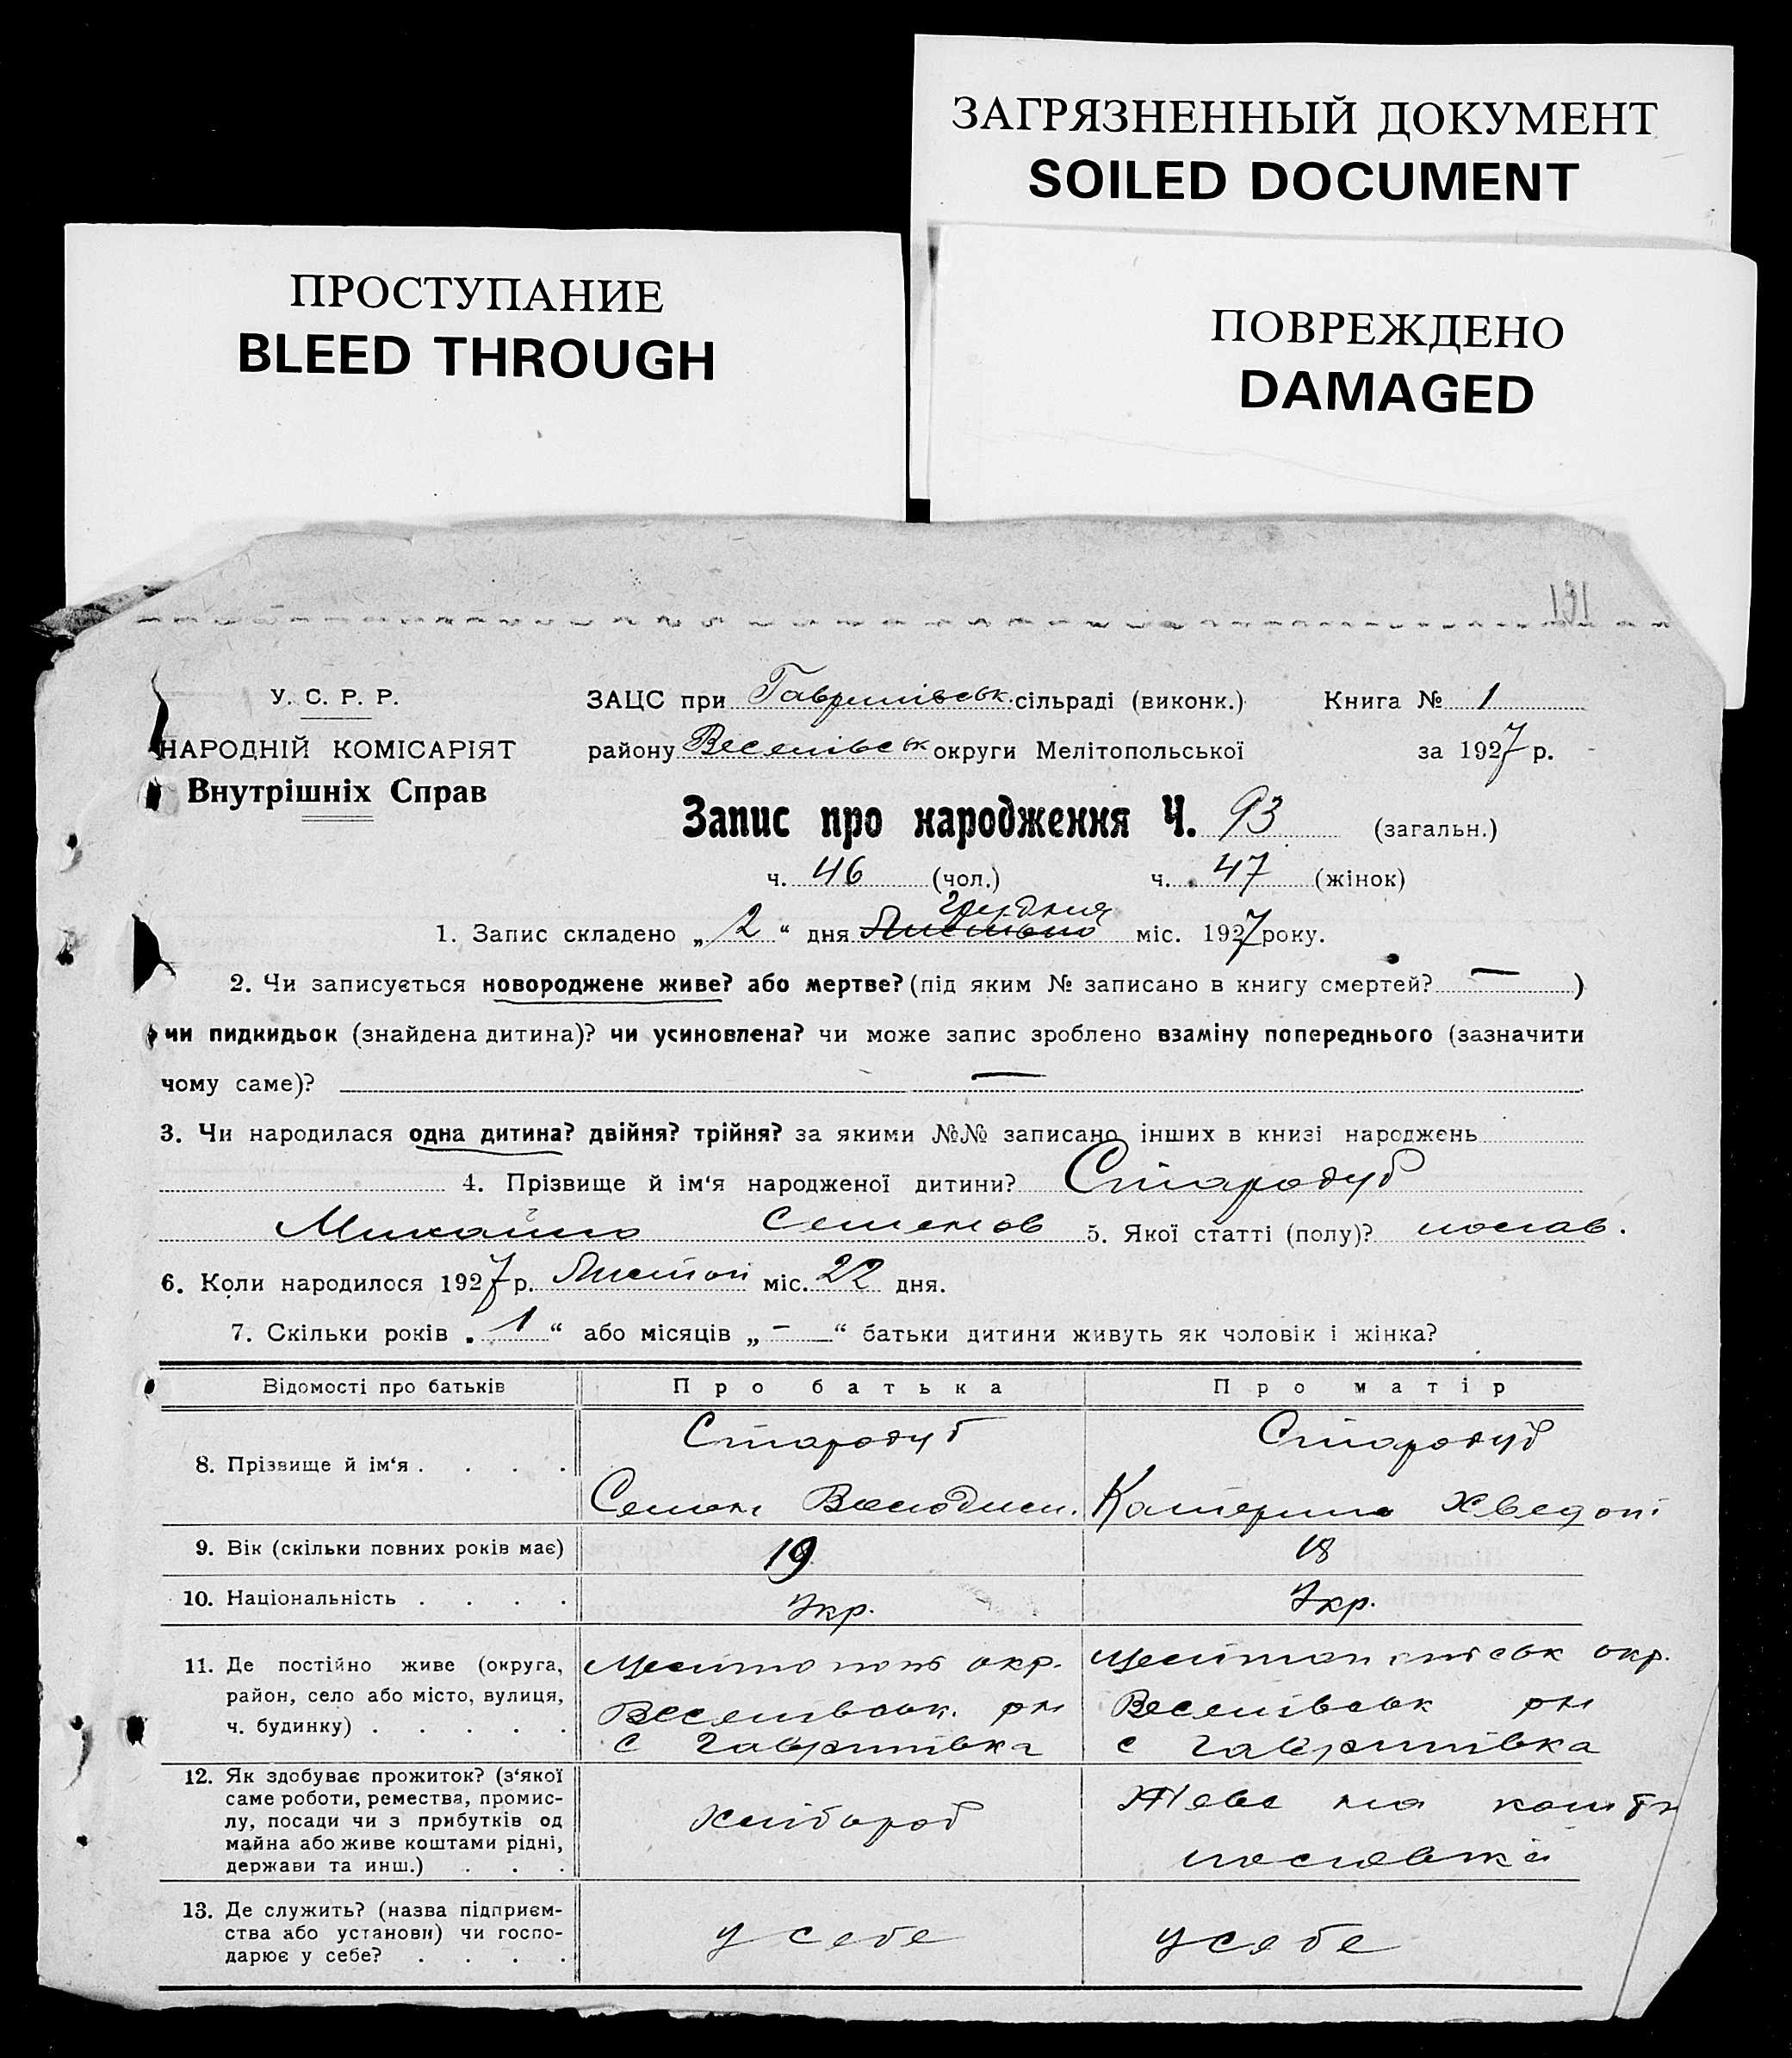 ЗАГРЯЗНЕННЫЙ ДОКУМЕНТ
SOILED DOCUMENT
ПРОСТУПАНИЕ
BLEED THROUGH
ПОВРЕЖДЕНО
DAMAGED
У. С. Р. Р.
НАРОДНІЙ КОМІСАРІЯТ
Внутрішніх Справ
ЗАЦС при Гаврилівськ. сільраді (виконк.) Книга № 1
району Веселівськ округи Мелітопольської за 1927 р.
Запис про народження Ч. 93 (загальн.)
ч. 46 (чол.) ч. 47 (жінок)
грудня
1. Запис складено „ 2 “ дня міс. 1927 року.
2. Чи записується новороджене живе? або мертве? (під яким № записано в книгу смертей? — )
чи пидкидьок (знайдена дитина)? чи усиновлена? чи може запис зроблено взаміну попереднього (зазначити
чому саме)? —
3. Чи народилася одна дитина? двійня? трійня? за якими №№ записано інших в книзі народжень
4. Прізвище й ім‘я народженої дитини? Стародуб
Михайло Семенов 5. Якої статті (полу)?
6. Коли народилося 1927 р. Листоп міс. 22 дня.
7. Скільки років „ 1 “ або місяців „ - “ батьки дитини живуть як чоловік і жінка?
Відомості про батьків Про батька Про матір
8. Прізвище й ім‘я . . . . Стародуб Стародуб
Семен Володим. Катерина Хведор.
9. Вік (скільки повних років має) 19 18
10. Національність . . . . Укр. Укр.
11. Де постійно живе (округа, район, село або місто, вулиця, ч. будинку) . . . . .
Мелітополь окр. Мелітопільськ окр.
Веселівськ. рн Веселівськ рн
с Гаврилівка с Гаврилівка
12. Як здобуває прожиток? (з‘якої
саме роботи, ремества, промис-
лу, посади чи з прибутків од
майна або живе коштами рідні,
держави та инш.) . . .
Хлібороб
Живе на кошти
чоловіка
13. Де служить? (назва підприєм-
ства або установи) чи госпо-
дарює у себе? . . . .
у себе у себе